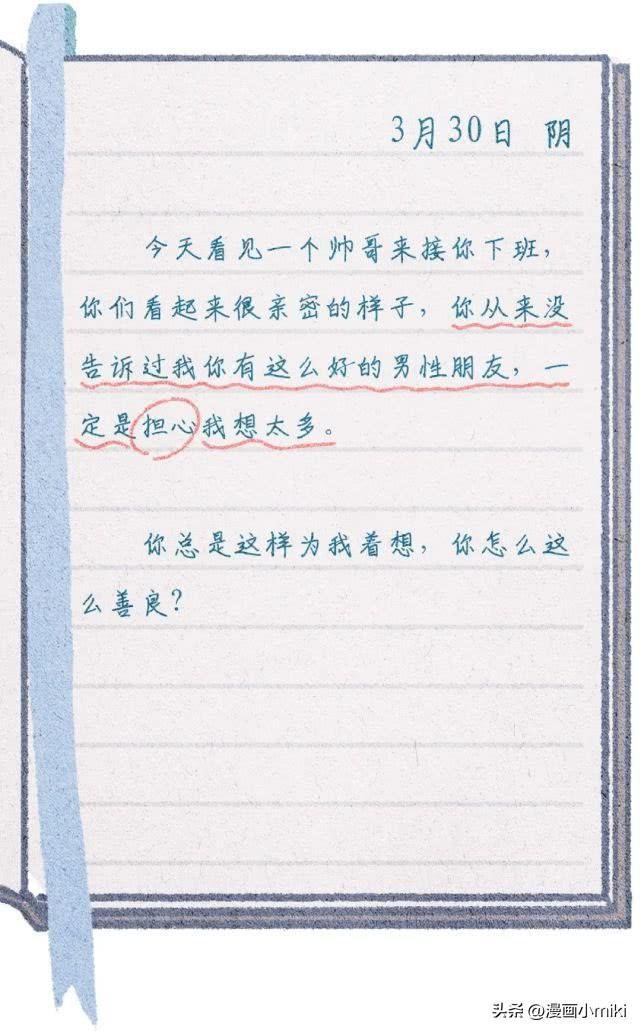 3月30日 阴
今天看见一个帅哥来接你下班，
你们看起来很亲密的样子，你从来没
告诉过我你有这么好的男性朋友，一
定是担心我想太多。
你总是这样为我着想，你怎么这
么善良？
头条 @漫画小miki